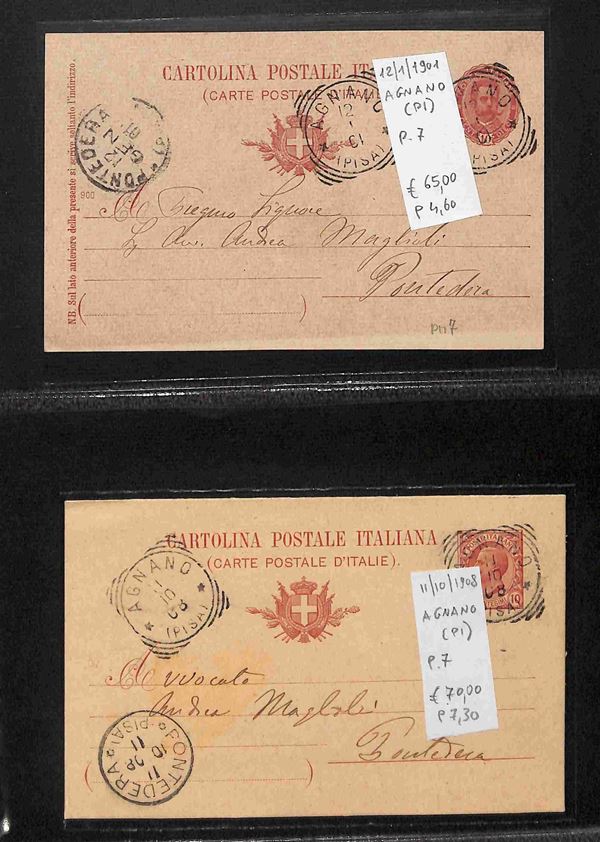 CARTOLINA POSTALE ITAL
(CARTE POSTALE D'ITAL
12/1/1901
AGNANO
(PI)
P.7
€ 65,00
P 4,60
AGNANO
12
1
01
(PISA)
PONTEDERA
12
GEN
01
900
N.B. Sul lato anteriore della presente si scrive soltanto l'indirizzo.
Andrea Maglioli
Pontedera
CARTOLINA POSTALE ITALIANA
(CARTE POSTALE D'ITALIE).
AGNANO
08
(PISA)
11
10
08
10
11/10/1908
AGNANO
(PI)
P.7
€ 70,00
P 7,30
Avvocato
Andrea
Pontedera
PONTEDERA
11
10
08
11
(PISA)